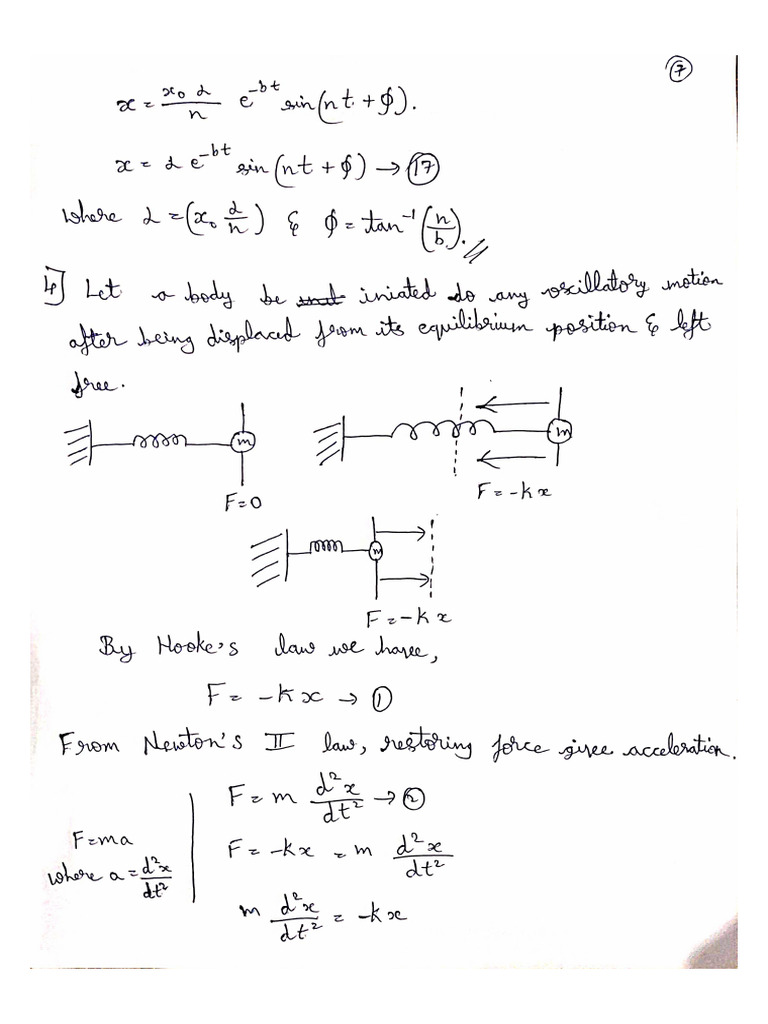 7
x = x₀ α / n e^-bt sin(nt + ϕ).
x = α e^-bt sin(nt + ϕ) → 17
where α = (x₀ α/n) & ϕ = tan⁻¹(n/b).
4] Let a body be iniated do any oscillatory motion
after being displaced from its equilibrium position & left
free.
m m
F=0 F = -kx
m
F = -kx
By Hooke's law we have,
F = -kx → 1
From Newton's II law, restoring force gives acceleration.
F = m d²x/dt² → 2
F=ma
F = -kx = m d²x/dt²
where a = d²x/dt²
m d²x/dt² = -kx